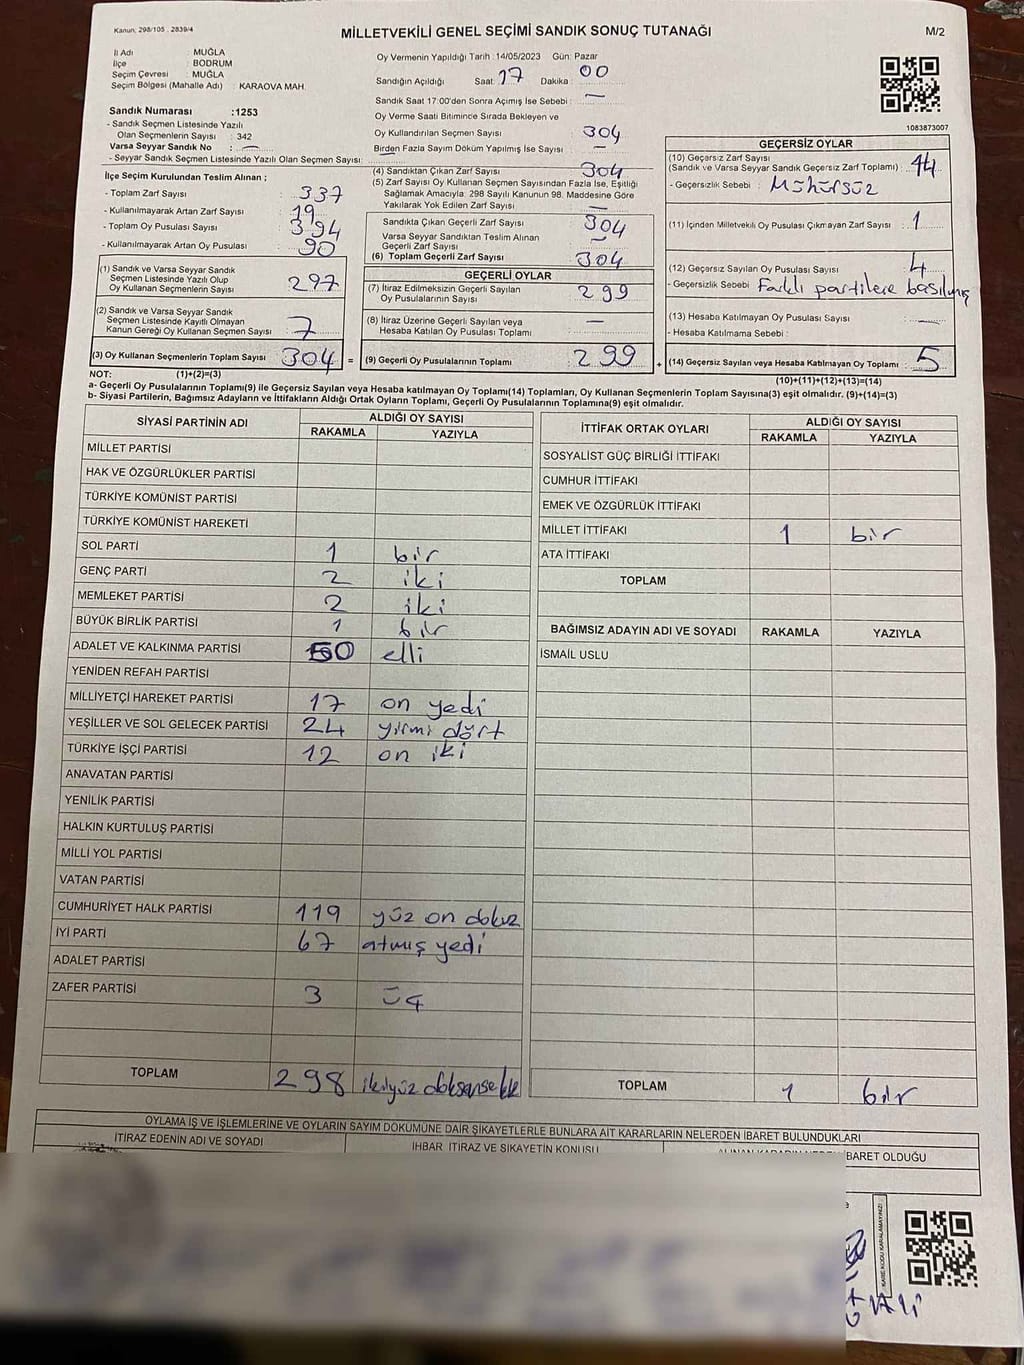 Kanun: 298/105 . 2839/4
MİLLETVEKİLİ GENEL SEÇİMİ SANDIK SONUÇ TUTANAĞI
M/2
İl Adı : MUĞLA
İlçe : BODRUM
Seçim Çevresi : MUĞLA
Seçim Bölgesi (Mahalle Adı) : KARAOVA MAH.
Sandık Numarası :1253
- Sandık Seçmen Listesinde Yazılı
Olan Seçmenlerin Sayısı : 342
Varsa Seyyar Sandık No : —
- Seyyar Sandık Seçmen Listesinde Yazılı Olan Seçmen Sayısı:
İlçe Seçim Kurulundan Teslim Alınan ;
- Toplam Zarf Sayısı : 337
- Kullanılmayarak Artan Zarf Sayısı : 19
- Toplam Oy Pusulası Sayısı : 394
- Kullanılmayarak Artan Oy Pusulası : 90
(1) Sandık ve Varsa Seyyar Sandık
Seçmen Listesinde Yazılı Olup
Oy Kullanan Seçmenlerin Sayısı : 297
(2) Sandık ve Varsa Seyyar Sandık
Seçmen Listesinde Kayıtlı Olmayan
Kanun Gereği Oy Kullanan Seçmen Sayısı : 7
(3) Oy Kullanan Seçmenlerin Toplam Sayısı : 304 =
Oy Vermenin Yapıldığı Tarih :14/05/2023 Gün: Pazar
Sandığın Açıldığı Saat: 17 Dakika : 00
Sandık Saat 17:00'den Sonra Açımış İse Sebebi : —
Oy Verme Saati Bitiminde Sırada Bekleyen ve
Oy Kullandırılan Seçmen Sayısı : 304
Birden Fazla Sayım Döküm Yapılmış İse Sayısı : —
(4) Sandıktan Çıkan Zarf Sayısı : 304
(5) Zarf Sayısı Oy Kullanan Seçmen Sayısından Fazla İse, Eşitliği
Sağlamak Amacıyla: 298 Sayılı Kanunun 98. Maddesine Göre
Yakılarak Yok Edilen Zarf Sayısı : —
Sandıkta Çıkan Geçerli Zarf Sayısı : 304
Varsa Seyyar Sandıktan Teslim Alınan
Geçerli Zarf Sayısı : —
(6) Toplam Geçerli Zarf Sayısı : 304
GEÇERLİ OYLAR
(7) İtiraz Edilmeksizin Geçerli Sayılan
Oy Pusulalarının Sayısı : 299
(8) İtiraz Üzerine Geçerli Sayılan veya
Hesaba Katılan Oy Pusulası Toplamı : —
(9) Geçerli Oy Pusulalarının Toplamı : 299 +
1083873007
GEÇERSİZ OYLAR
(10) Geçersiz Zarf Sayısı
(Sandık ve Varsa Seyyar Sandık Geçersiz Zarf Toplamı) :
- Geçersizlik Sebebi : Mühürsüz
(11) İçinden Milletvekili Oy Pusulası Çıkmayan Zarf Sayısı : 1
(12) Geçersiz Sayılan Oy Pusulası Sayısı : 4
- Geçersizlik Sebebi : Farklı partilere basılmış
(13) Hesaba Katılmayan Oy Pusulası Sayısı : —
- Hesaba Katılmama Sebebi :
(14) Geçersiz Sayılan veya Hesaba Katılmayan Oy Toplamı : 5
NOT: (1)+(2)=(3)
(10)+(11)+(12)+(13)=(14)
a- Geçerli Oy Pusulalarının Toplamı(9) ile Geçersiz Sayılan veya Hesaba katılmayan Oy Toplamı(14) Toplamları, Oy Kullanan Seçmenlerin Toplam Sayısına(3) eşit olmalıdır. (9)+(14)=(3)
b- Siyasi Partilerin, Bağımsız Adayların ve İttifakların Aldığı Ortak Oyların Toplamı, Geçerli Oy Pusulalarının Toplamına(9) eşit olmalıdır.
SİYASİ PARTİNİN ADI
ALDIĞI OY SAYISI
RAKAMLA YAZIYLA
MİLLET PARTİSİ
HAK VE ÖZGÜRLÜKLER PARTİSİ
TÜRKİYE KOMÜNİST PARTİSİ
TÜRKİYE KOMÜNİST HAREKETİ
SOL PARTİ 1 bir
GENÇ PARTİ 2 iki
MEMLEKET PARTİSİ 2 iki
BÜYÜK BİRLİK PARTİSİ 1 bir
ADALET VE KALKINMA PARTİSİ 50 elli
YENİDEN REFAH PARTİSİ
MİLLİYETÇİ HAREKET PARTİSİ 17 on yedi
YEŞİLLER VE SOL GELECEK PARTİSİ 24 yirmi dört
TÜRKİYE İŞÇİ PARTİSİ 12 on iki
ANAVATAN PARTİSİ
YENİLİK PARTİSİ
HALKIN KURTULUŞ PARTİSİ
MİLLİ YOL PARTİSİ
VATAN PARTİSİ
CUMHURİYET HALK PARTİSİ 119 yüz on dokuz
İYİ PARTİ 67 atmış yedi
ADALET PARTİSİ
ZAFER PARTİSİ 3 üç
TOPLAM 298 ikiyüz doksansekiz
İTTİFAK ORTAK OYLARI
ALDIĞI OY SAYISI
RAKAMLA YAZIYLA
SOSYALİST GÜÇ BİRLİĞİ İTTİFAKI
CUMHUR İTTİFAKI
EMEK VE ÖZGÜRLÜK İTTİFAKI
MİLLET İTTİFAKI 1 bir
ATA İTTİFAKI
TOPLAM
BAĞIMSIZ ADAYIN ADI VE SOYADI RAKAMLA YAZIYLA
İSMAİL USLU
TOPLAM 1 bir
OYLAMA İŞ VE İŞLEMLERİNE VE OYLARIN SAYIM DÖKÜMÜNE DAİR ŞİKAYETLERLE BUNLARA AİT KARARLARIN NELERDEN İBARET BULUNDUKLARI
İTİRAZ EDENİN ADI VE SOYADI
İHBAR İTİRAZ VE ŞİKAYETİN KONUSU
İBARET OLDUĞU